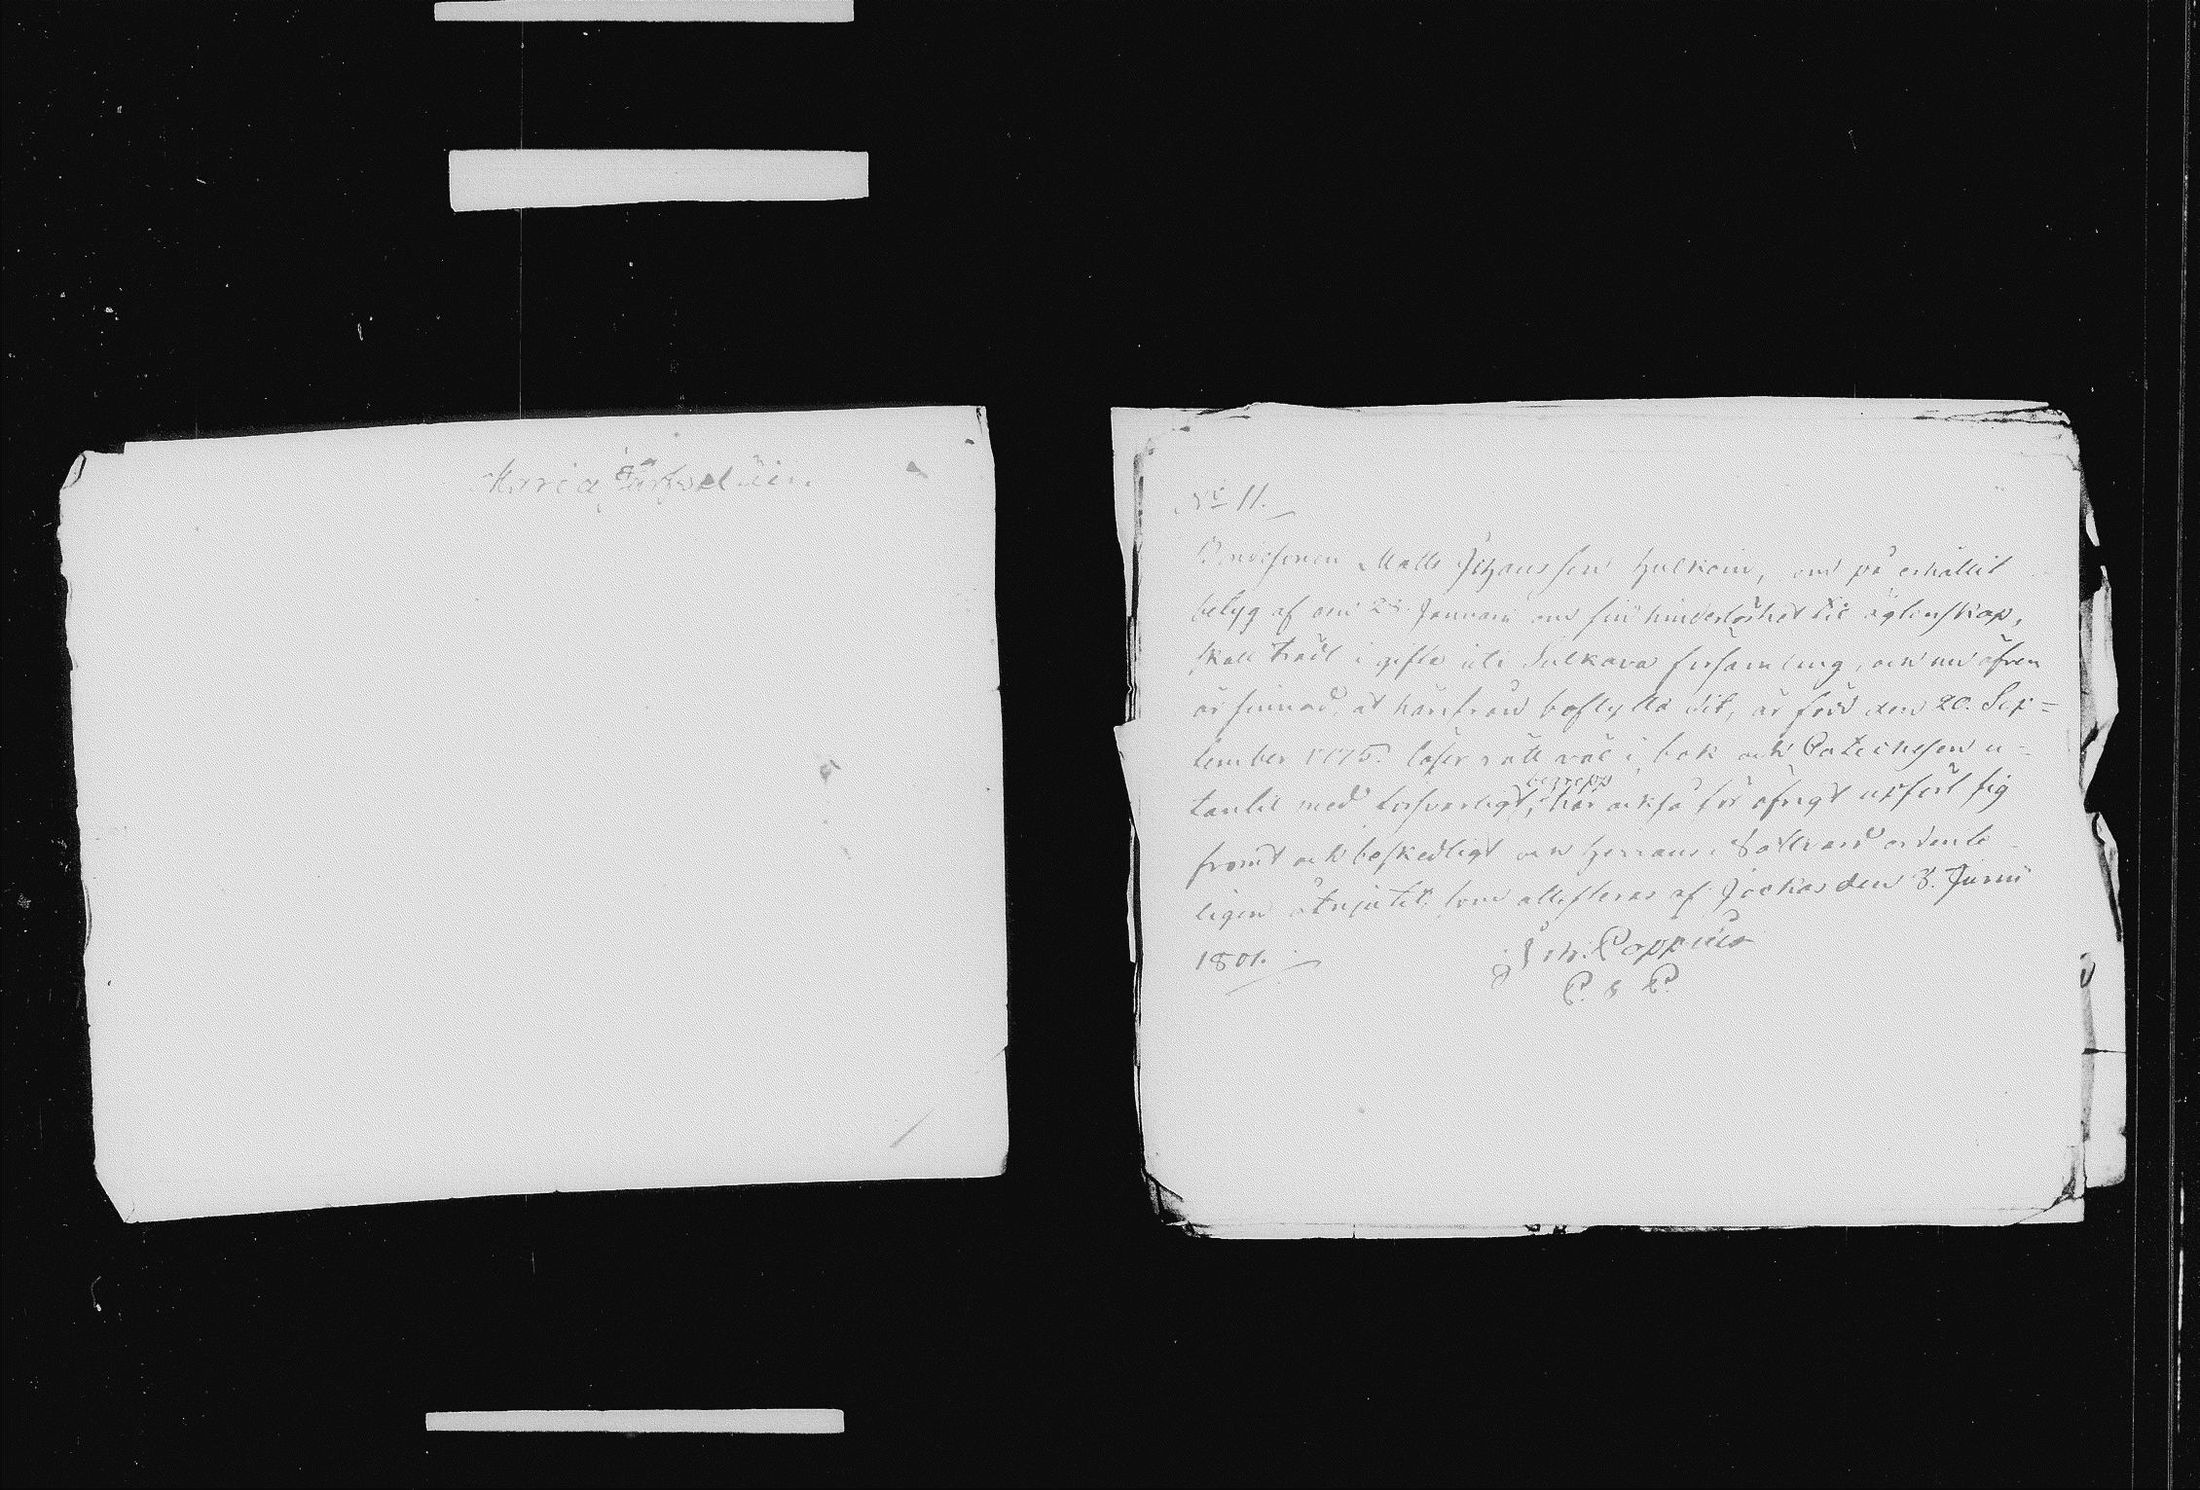 Maria
No 11.
Bondesonen Matts Johansson Hulkoin, som på erhållit
betyg af den 23. Januarii om sin hinderlöshet til ägtenskap,
skall trädt i gifte uti Sulkava församling, och nu äfven
är sinnad, at härifrån beflytta dit, är född den 20. Sep=
tember 1775. läser rätt väl i bok och Catechesen u=
tantil med försvarligt begrepp, har också för öfrigt upfört sig
fromt och beskedligt och Herrans Nattvard ordente
ligen åtnjutit, som attesteras af Jockas den 3. Junii
1801.
Joh. Coppius